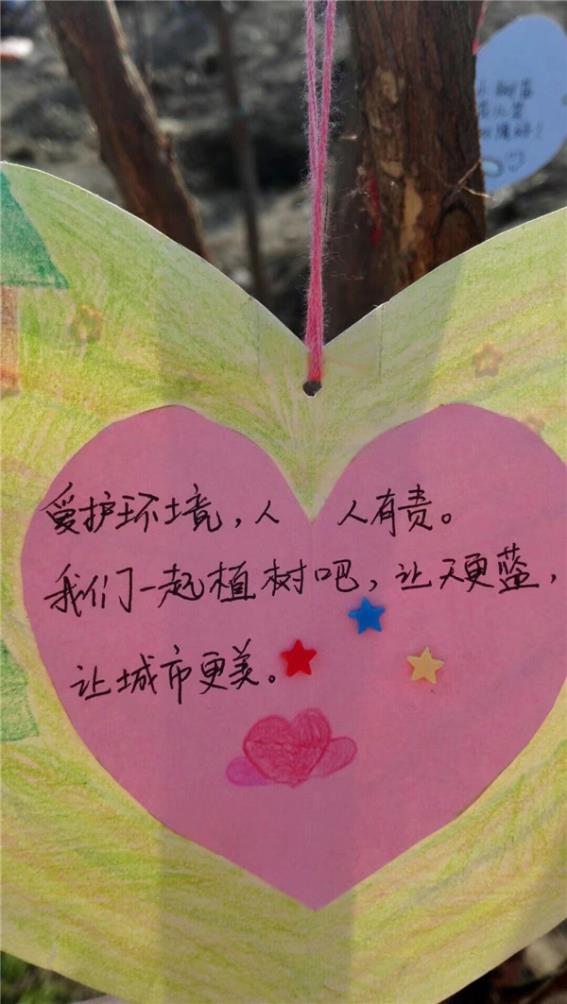 爱护环境,人人有责。
我们一起植树吧,让天更蓝,
让城市更美。